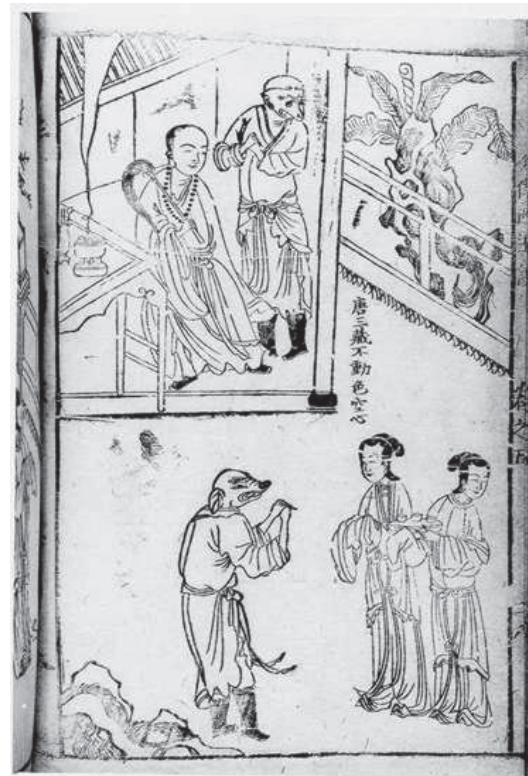 唐三藏不動色空心